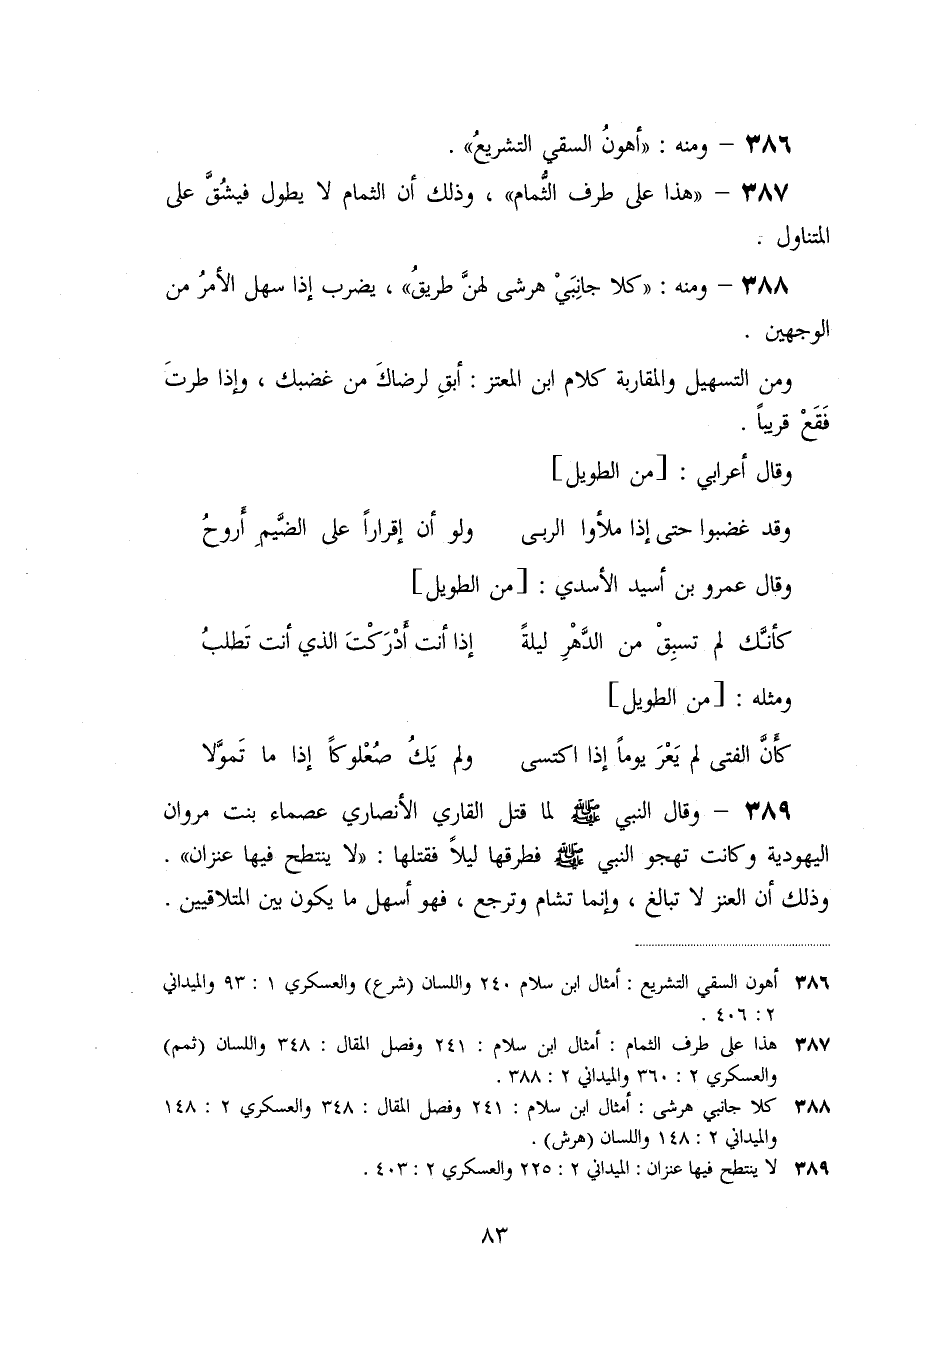 ٣٨٦ – ومنه : «أهونُ السقي التشريعُ» .
٣٨٧ – «هذا على طرف الثُّمام» ، وذلك أن الثمام لا يطول فيشُقَّ على
المتناول .
٣٨٨ – ومنه : «كلا جانِبَيْ هرشى لهنَّ طريقُ» ، يضرب إذا سهل الأمرُ من
الوجهين .
ومن التسهيل والمقاربة كلام ابن المعتز : أبقِ لرضاكَ من غضبك ، وإذا طرتَ
فَقَعْ قريباً .
وقال أعرابي : [من الطويل]
وقد غضبوا حتى إذا ملأوا الربى ولو أن إقراراً على الضَّيمِ أَروحُ
وقال عمرو بن أسيد الأسدي : [من الطويل]
كأنَّك لم تسبِقْ من الدَّهْرِ ليلةً إذا أنت أَدْرَكْتَ الذي أنت تَطلبُ
ومثله : [من الطويل]
كأَنَّ الفتى لم يَعْرَ يوماً إذا اكتسى ولم يَكُ صُعْلوكاً إذا ما تَموَّلا
٣٨٩ – وقال النبي ﷺ لما قتل القاري الأنصاري عصماء بنت مروان
اليهودية وكانت تهجو النبي ﷺ فطرقها ليلاً فقتلها : «لا ينتطح فيها عنزان» .
وذلك أن العنز لا تبالغ ، وإنما تشام وترجع ، فهو أسهل ما يكون بين المتلاقيين .
٣٨٦ أهون السقي التشريع : أمثال ابن سلام ٢٤٠ واللسان (شرع) والعسكري ١ : ٩٣ والميداني
٢ : ٤٠٦ .
٣٨٧ هذا على طرف الثمام : أمثال ابن سلام : ٢٤١ وفصل المقال : ٣٤٨ واللسان (ثمم)
والعسكري ٢ : ٣٦٠ والميداني ٢ : ٣٨٨ .
٣٨٨ كلا جانبي هرشى : أمثال ابن سلام : ٢٤١ وفصل المقال : ٣٤٨ والعسكري ٢ : ١٤٨
والميداني ٢ : ١٤٨ واللسان (هرش) .
٣٨٩ لا ينتطح فيها عنزان : الميداني ٢ : ٢٢٥ والعسكري ٢ : ٤٠٣ .
٨٣